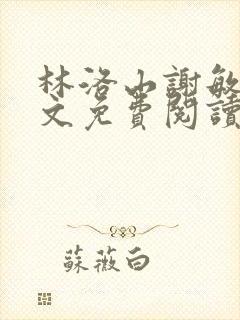 林洛山謝敏
文免費閱讀
蘇薇白